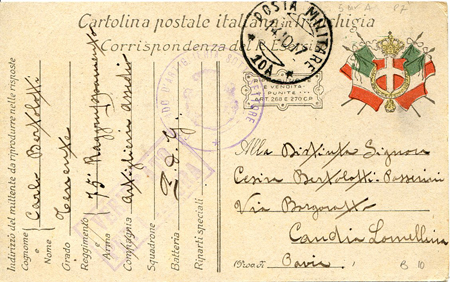 Sez. A P7
Cartolina postale italiana in franchigia
Corrispondenza del R. Esercito
POSTA MILITARE
10A
E VENDITA
PUNITE
ART. 268 E 270 C.P.
Indirizzo del mittente da riprodurre nelle risposte
Cognome e Nome Carlo Bertolotti
Grado Tenente
Reggimento e Arma 15° Raggruppamento
Compagnia Artiglieria Assedio
Squadrone
Batteria Z.d.G.
Riparti speciali
Alla Distinta Signora
Cesira Bertolotti-Passerini
Via
Candia Lomellina
Pavia
B 10